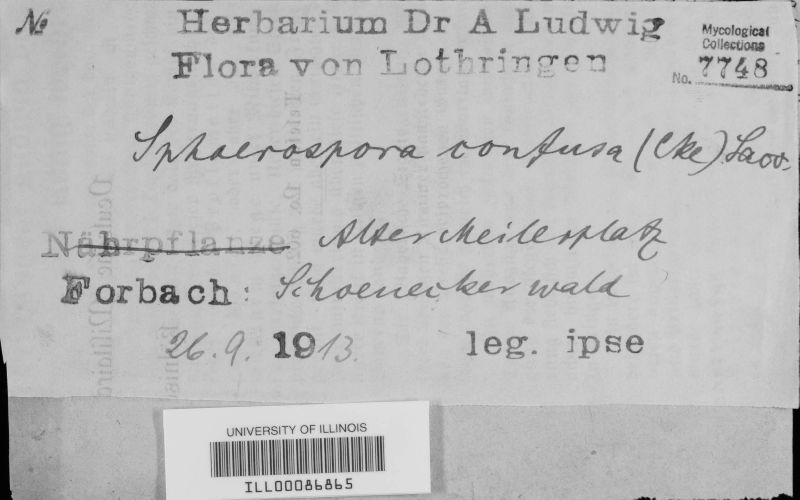 № Herbarium Dr A Ludwig
Flora von Lothringen
Mycological
Collections
No. 7748
Sphaerospora confusa (Cke) Sacc.
Nährpflanze Alter Meilerplatz
Forbach: Schoenecker wald
26.9. 1913. leg. ipse
UNIVERSITY OF ILLINOIS
ILL00086865